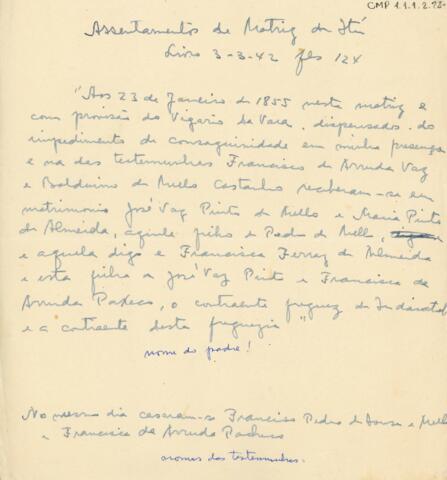 CMP 1.1.1.2.92-
Assentamentos de Matriz de Itú
Livro 3-3-42 fls 124
"Aos 23 de Janeiro de 1855 nesta matriz e
com provisão do Vigario da Vara, dispensados do
impedimento de consaguinidade em minha presença
e na das testemunhas Francisco de Arruda Vaz
e Balduino de Mello Castanho receberam-se em
matrimonio José Vaz Pinto de Mello e Maria Pinto
de Almeida, aquele filho e Pedro de Mello,
e aquela digo e Francisca Ferraz de Almeida
e esta filha de José Vaz Pinto e Francisca de
Arruda Pacheco, o contraente freguez de Indaiatuba
e a contraente desta freguezia"
nome do padre!
No mesmo dia casaram-se Francisco Pedro de Souza e Mello
e Francisca de Arruda Pacheco
os nomes das testemunhas.